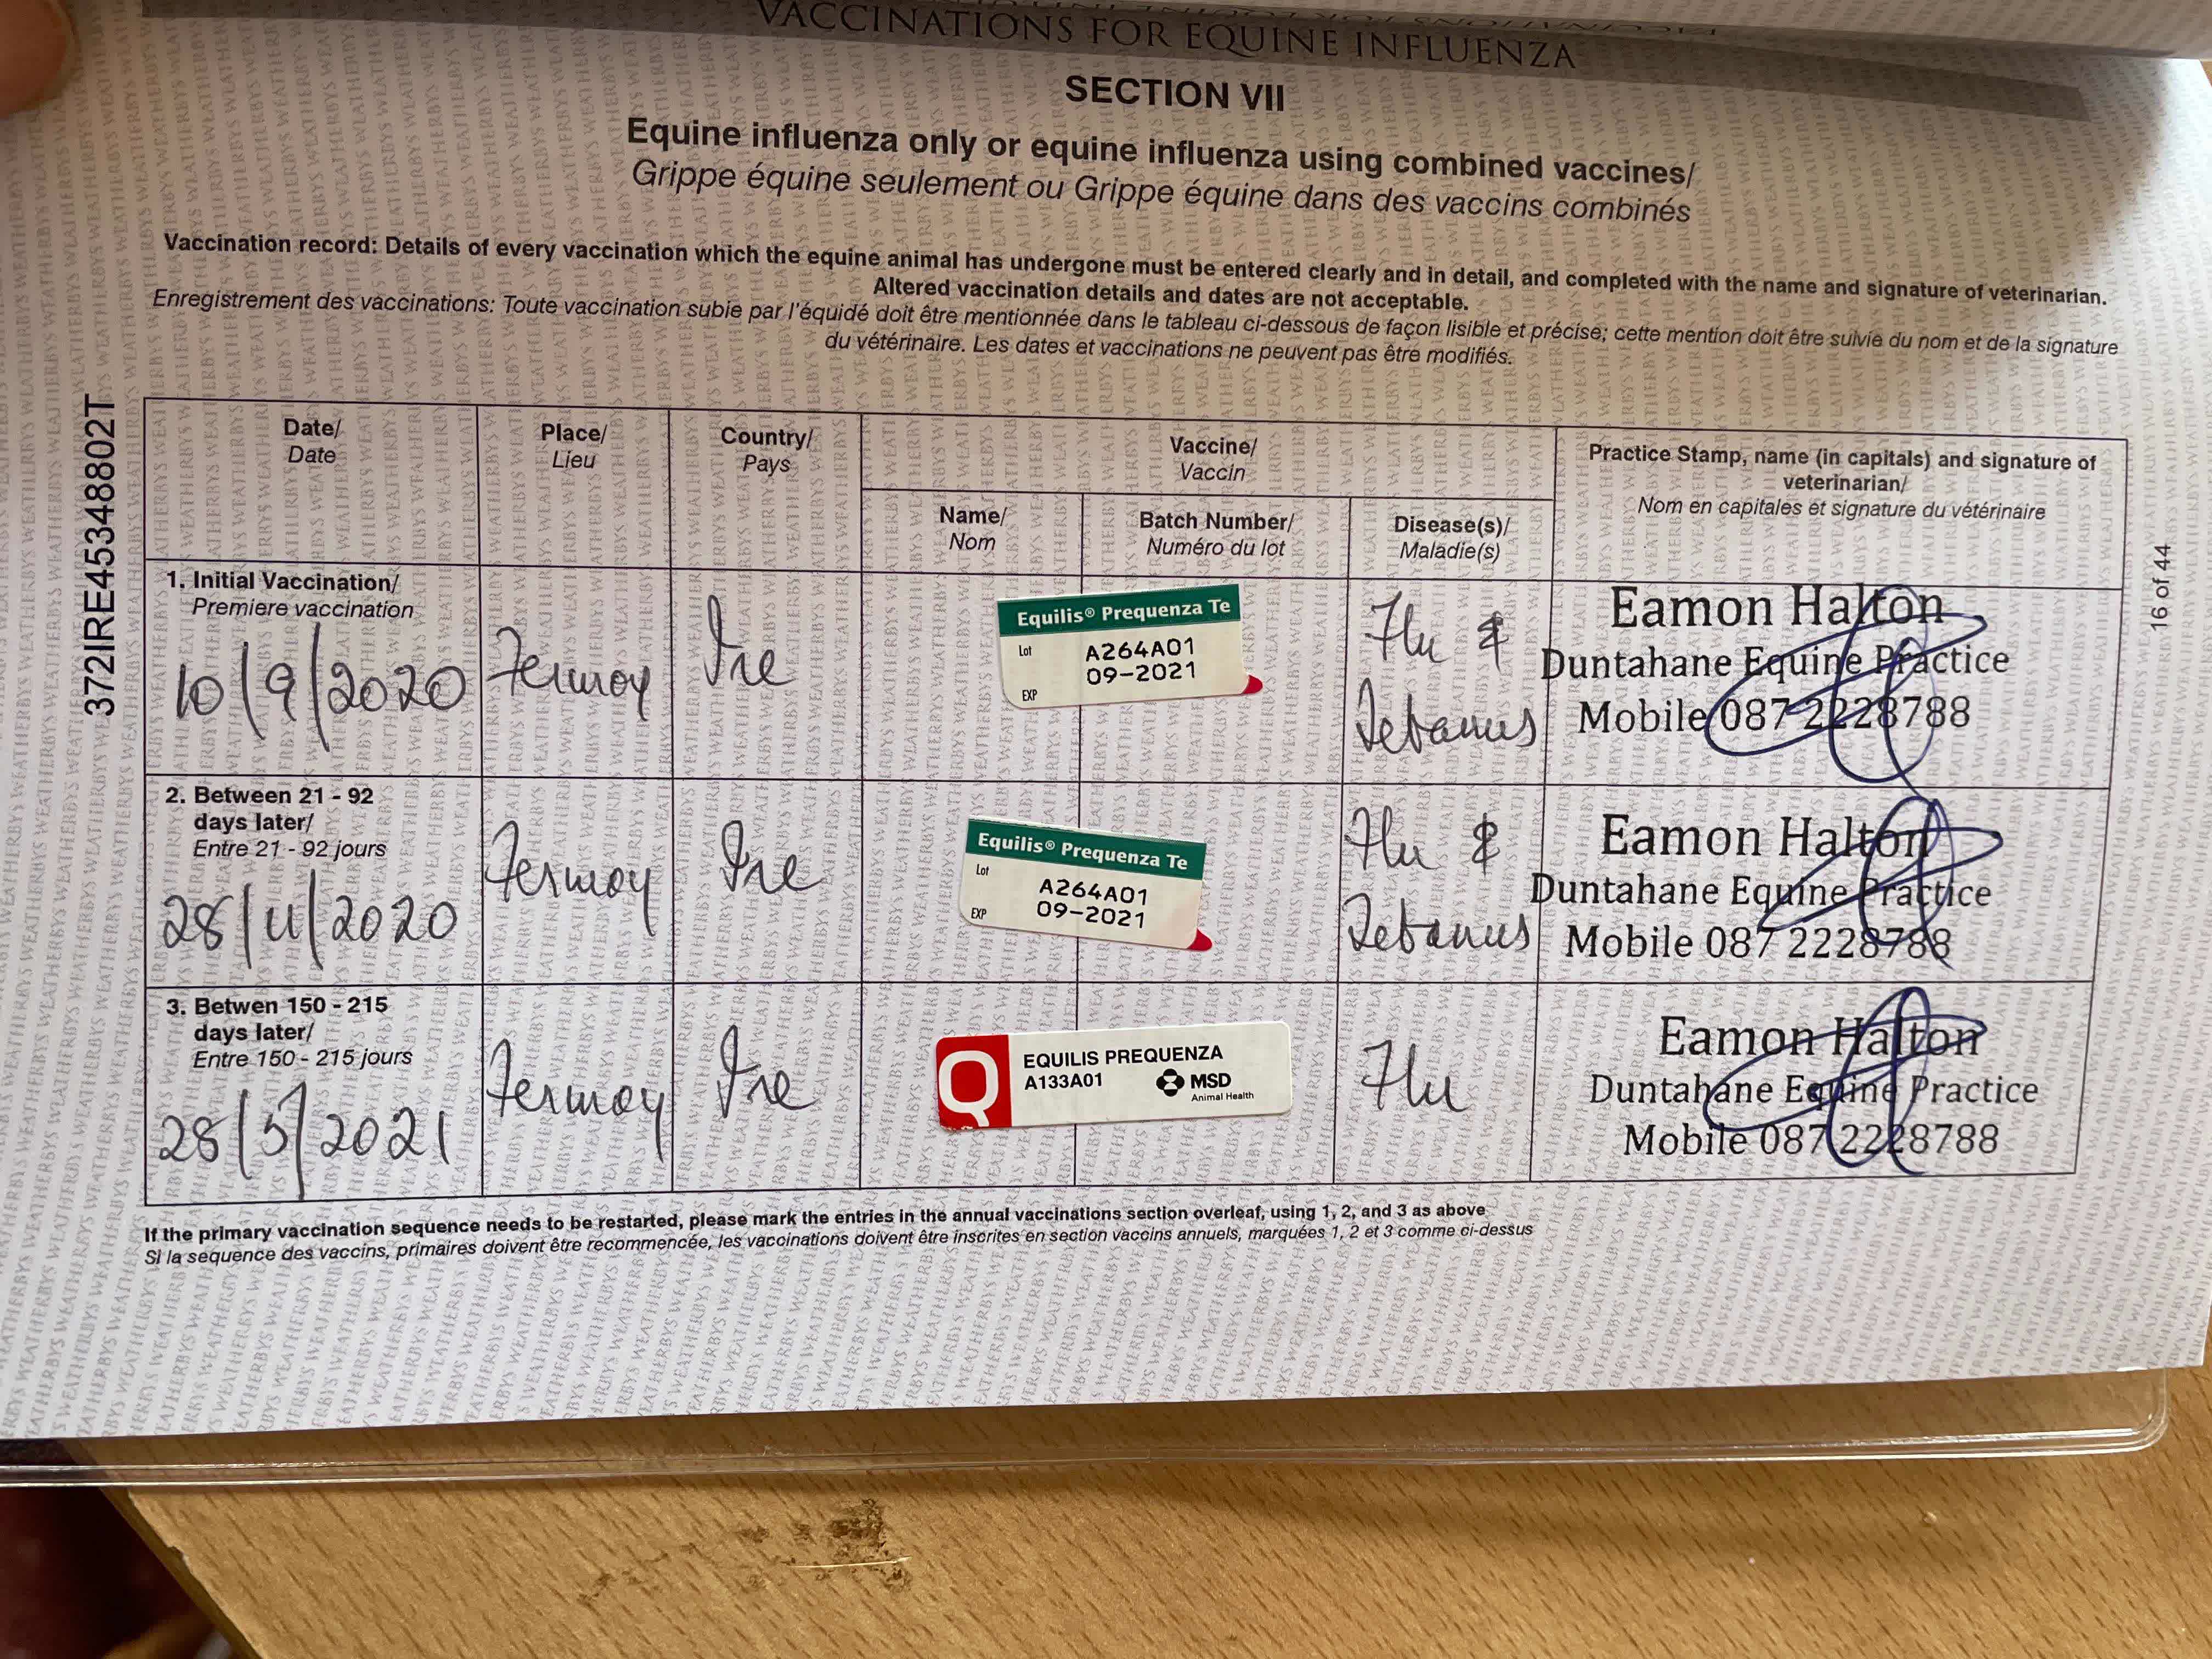 VACCINATIONS FOR EQUINE INFLUENZA
SECTION VII
Equine influenza only or equine influenza using combined vaccines/
Grippe équine seulement ou Grippe équine dans des vaccins combinés
Vaccination record: Details of every vaccination which the equine animal has undergone must be entered clearly and in detail, and completed with the name and signature of veterinarian.
Altered vaccination details and dates are not acceptable.
Enregistrement des vaccinations: Toute vaccination subie par l'équidé doit être mentionnée dans le tableau ci-dessous de façon lisible et précise; cette mention doit être suivie du nom et de la signature
du vétérinaire. Les dates et vaccinations ne peuvent pas être modifiés.
372IRE45348802T
16 of 44
Date/
Date
Place/
Lieu
Country/
Pays
Vaccine/
Vaccin
Name/
Nom
Batch Number/
Numéro du lot
Disease(s)/
Maladie(s)
Practice Stamp, name (in capitals) and signature of
veterinarian/
Nom en capitales et signature du vétérinaire
1. Initial Vaccination/
Premiere vaccination
10/9/2020
Fermoy
Ire
Equilis® Prequenza Te
Lot A264A01
EXP 09-2021
Flu &
Tetanus
Eamon Halton
Duntahane Equine Practice
Mobile 087 2228788
2. Between 21 - 92
days later/
Entre 21 - 92 jours
28/11/2020
Fermoy
Ire
Equilis® Prequenza Te
Lot A264A01
EXP 09-2021
Flu &
Tetanus
Eamon Halton
Duntahane Equine Practice
Mobile 087 2228788
3. Betwen 150 - 215
days later/
Entre 150 - 215 jours
28/5/2021
Fermoy
Ire
Q
EQUILIS PREQUENZA
A133A01
MSD
Animal Health
Flu
Eamon Halton
Duntahane Equine Practice
Mobile 087 2228788
If the primary vaccination sequence needs to be restarted, please mark the entries in the annual vaccinations section overleaf, using 1, 2, and 3 as above
Si la sequence des vaccins, primaires doivent être recommencée, les vaccinations doivent être inscrites en section vaccins annuels, marquées 1, 2 et 3 comme ci-dessus